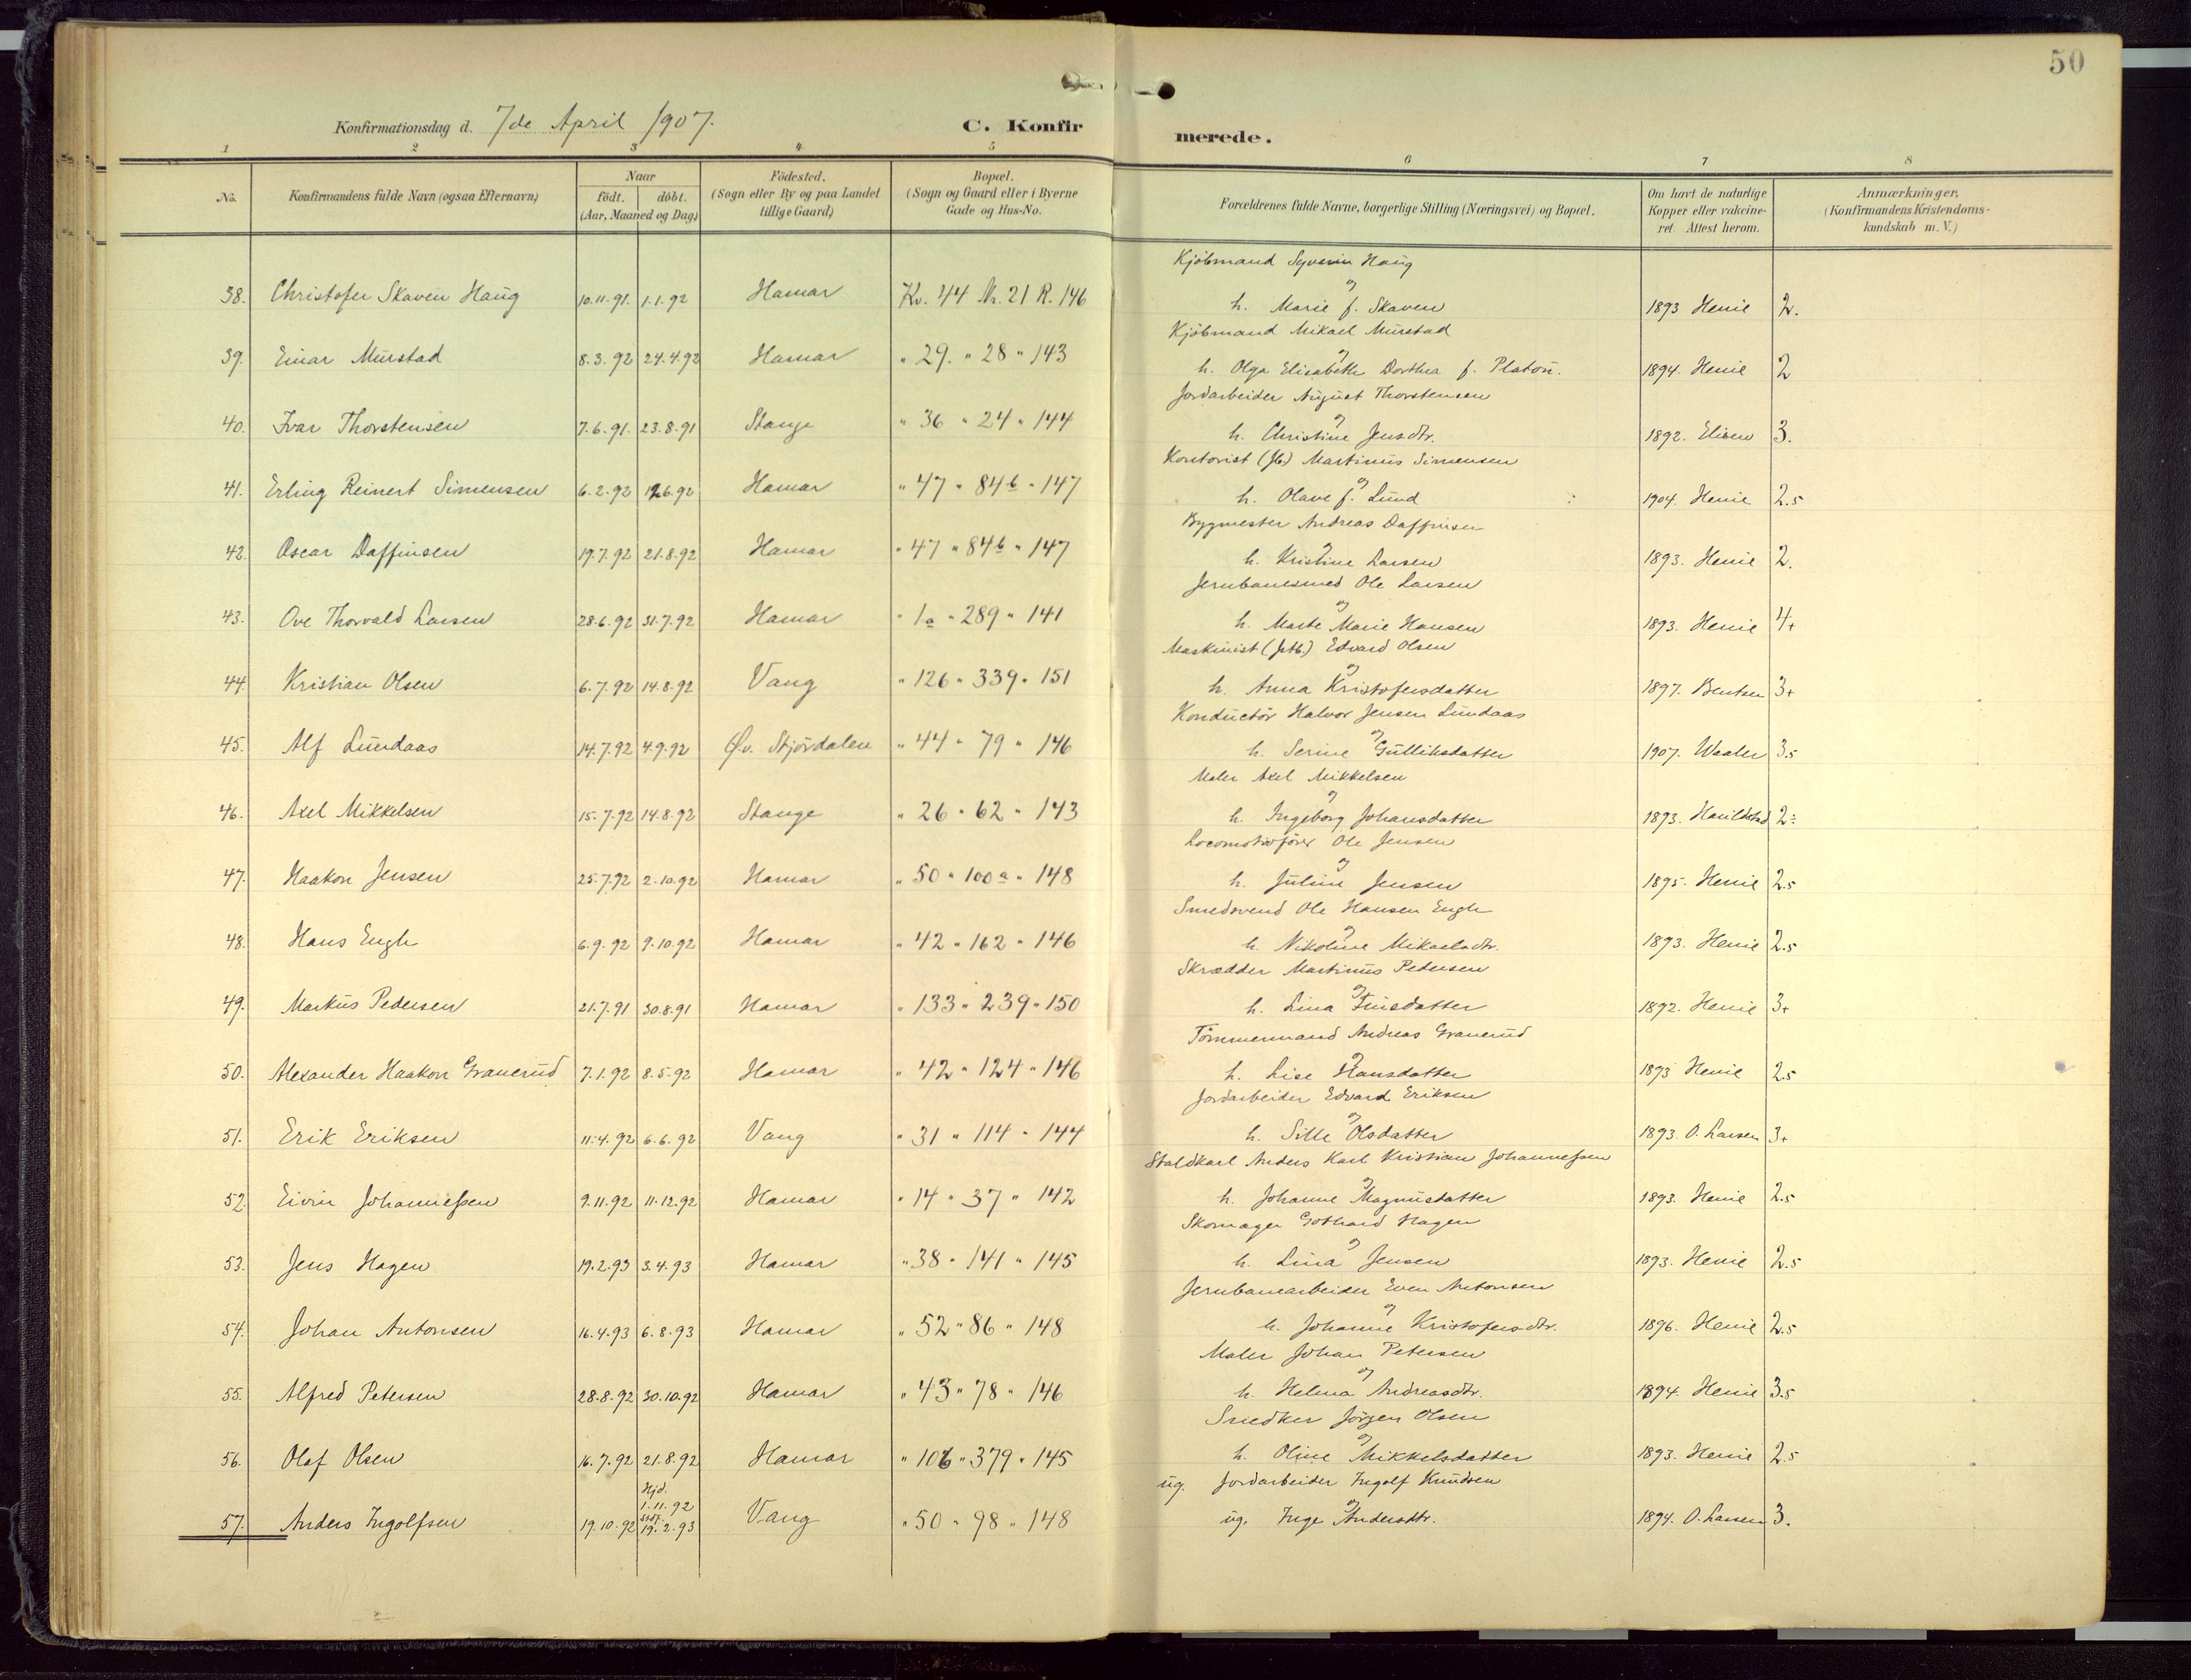 50
Konfirmationsdag d. 7de April 1907. C. Konfirmerede.
1 2 3 4 5 6 7 8
No. Konfirmandens fulde Navn (ogsaa Efternavn) Naar födt. döbt. (Aar, Maaned og Dag) Födested. (Sogn eller By og paa Landet tillige Gaard) Bopæl. (Sogn og Gaard eller i Byerne Gade og Hus-No. Forældrenes fulde Navne, borgerlige Stilling (Næringsvei) og Bopæl. Om havt de naturlige Kopper eller vakcineret. Attest herom. Anmærkninger. (Konfirmandens Kristendomskundskab m. V.)
Kjöbmand Syverin Haug
38. Christofer Skaven Haug 10.11.91. 1.1.92 Hamar Kv. 44 Nr. 21 R. 146 og h. Marie f. Skaven 1893 Henie 2.
Kjöbmand Mikael Murstad
39. Einar Murstad 8.3.92 24.4.92 Hamar " 29. " 28 " 143 og h. Olga Elisabeth Dorthea f. Platou. 1894. Henie 2
Jordarbeider August Thorstensen
40. Ivar Thorstensen 7.6.91. 23.8.91 Stange " 36 " 24 " 144 og h. Christine Jensdtr. 1892. 3.
Kontorist (Jb.) Martinus Simensen
41. Erling Reinert Simensen 6.2.92 12.6.92 Hamar " 47 " 84b " 147 og h. Olave f. Lund 1904. Henie 2.5
Bygmester Andreas Daffinsen
42. Oscar Daffinsen 19.7.92 21.8.92 Hamar " 47 " 84b " 147 og h. Kristine Larsen 1893. Henie 2.
Jernbanesmed Ole Larsen
43. Ove Thorvald Larsen 28.6.92 31.7.92 Hamar " 1a " 289 " 141 og h. Marte Marie Hansen 1893. Henie 4+
Maskinist (Jrb.) Edvard Olsen
44. Kristian Olsen 6.7.92 14.8.92 Vang " 126 " 339 " 151 og h. Anna Kristofersdatter 1897. Bentsen 3+
Konductör Halvor Jensen Lundaas
45. Alf Lundaas 14.7.92 4.9.92 Øv. Stjördalen " 44 " 79 " 146 og h. Serine Gulliksdatter 1907. Waaler 3.5
Maler Axel Mikkelsen
46. Axel Mikkelsen 15.7.92 14.8.92 Stange " 26 " 62 " 143 og h. Ingeborg Johansdatter 1893. 2÷
Locomotivförer Ole Jensen
47. Haakon Jensen 25.7.92 2.10.92 Hamar " 50 " 100a " 148 og h. Juline Jensen 1895. Henie 2.5
Smedsvend Ole Hansen Engh
48. Hans Engh 6.9.92 9.10.92 Hamar " 42 " 162 " 146 og h. Nikoline Mikaelsdtr. 1893. Henie 2.5
Skrædder Martinus Pedersen
49. Markus Pedersen 21.7.91 30.8.91 Hamar " 133 " 239 " 150 og h. Lina 1892. Henie 3+
Tömmermand Andreas Granerud
50. Alexander Haakon Granerud 7.1.92 8.5.92 Hamar " 42 " 124 " 146 og h. Lise Hansdatter 1893 Henie 2.5
Jordarbeider Edvard Eriksen
51. Erik Eriksen 11.4.92 6.6.92 Vang " 31 " 114 " 144 og h. Sille Olsdatter 1893. O. Larsen 3+
Staldkarl Anders Karl Kristian Johannessen
52. Eivin Johannessen 9.11.92 11.12.92 Hamar " 14 " 37 " 142 og h. Johanne Magnusdatter 1893. Henie 2.5
Skomager Gothard Hagen
53. Jens Hagen 19.2.93 3.4.93 Hamar " 38 " 141 " 145 og h. Lina Jensen 1893. Henie 2.5
Jernbanearbeider Even Antonsen
54. Johan Antonsen 16.4.93 6.8.93 Hamar " 52 " 86 " 148 og h. Johanne Kristofersdtr. 1896. Henie 2.5
Maler Johan Petersen
55. Alfred Petersen 28.8.92 30.10.92 Hamar " 43 " 78 " 146 og h. Helma Andreasdtr. 1894. Henie 3.5
Snedker Jörgen Olsen
56. Olaf Olsen 16.7.92 21.8.92 Hamar " 106 " 379 " 145 og h. Oline Mikkelsdatter 1893. Henie 2.5
ug. Jordarbeider Ingolf Knudsen
57. Anders Ingolfsen 19.10.92 Hjd. 1.11.92 stdf. 19.2.93 Vang " 50 " 98 " 148 og ug. Inge Andersdtr. 1894. O. Larsen 3.